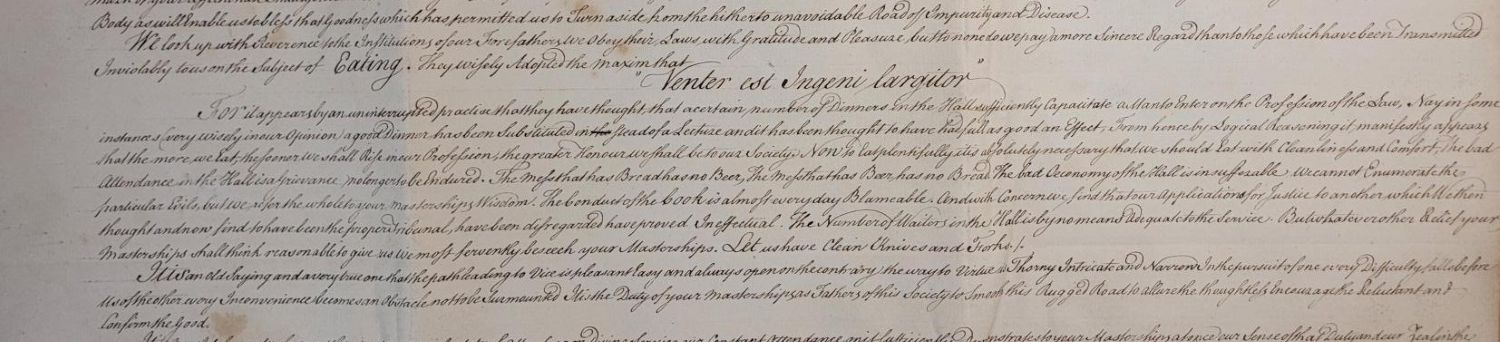 Body as will Enable us to bless that Goodness which has permitted us to Turn aside from the hitherto unavoidable Road of Impurity and Disease.
We look up with Reverence to the Institutions of our Forefathers, we Obey their Laws, with Gratitude and Pleasure, but to none do we pay a more Sincere Regard than to those which have been Transmitted
Inviolably to us on the Subject of Eating. They wisely Adopted the Maxim that
"Venter est Ingeni largitor"
For it appears by an uninterrupted practise that they have thought, that a certain number of Dinners in the Hall sufficiently Capacitate a Man to Enter on the Profession of the Law, Nay in some
instances (very wisely in our Opinion) a good Dinner has been Substituted in the stead of a Lecture and it has been thought to have had full as good an Effect, From hence by Logical Reasoning it manifestly appears,
that the more we Eat, the sooner we shall Rise in our Profession, the greater Honour we shall be to our Society. Now to Eat plentifully, it is absolutely necessary that we should Eat with Cleanliness and Comfort, The bad
Attendance in the Hall is a Grievance no longer to be Endured. The Mess that has Bread has no Beer, The Mess that has Beer, has no Bread The bad Oeconomy of the Hall is insufferable we cannot Enumerate the
particular Evils, but we refer the whole to your Masterships Wisdom. The Conduct of the Cook is almost every day Blameable. And with Concern we find that our Applications for Justice to another which We then
thought and now find to have been the proper Tribunal, have been disregarded have proved Ineffectual. The Number of Waiters in the Hall is by no means Adequate to the Service. But whatever other Relief your
Masterships shall think reasonable to give us, We most fervently beseech your Masterships. Let us have Clean Knives and Forks./.
It is an old Saying and a very true one that the path leading to Vice is pleasant Easy and always open on the contrary the way to Virtue is Thorny Intricate and Narrow In the pursuit of one every Difficulty falls before
Us of the other every Inconvenience becomes an Obstacle not to be Surmounted It is the Duty of your Masterships as Fathers of this Society to Smooth this Rugged Road to allure the thoughtless Encourage the Reluctant and
Confirm the Good.